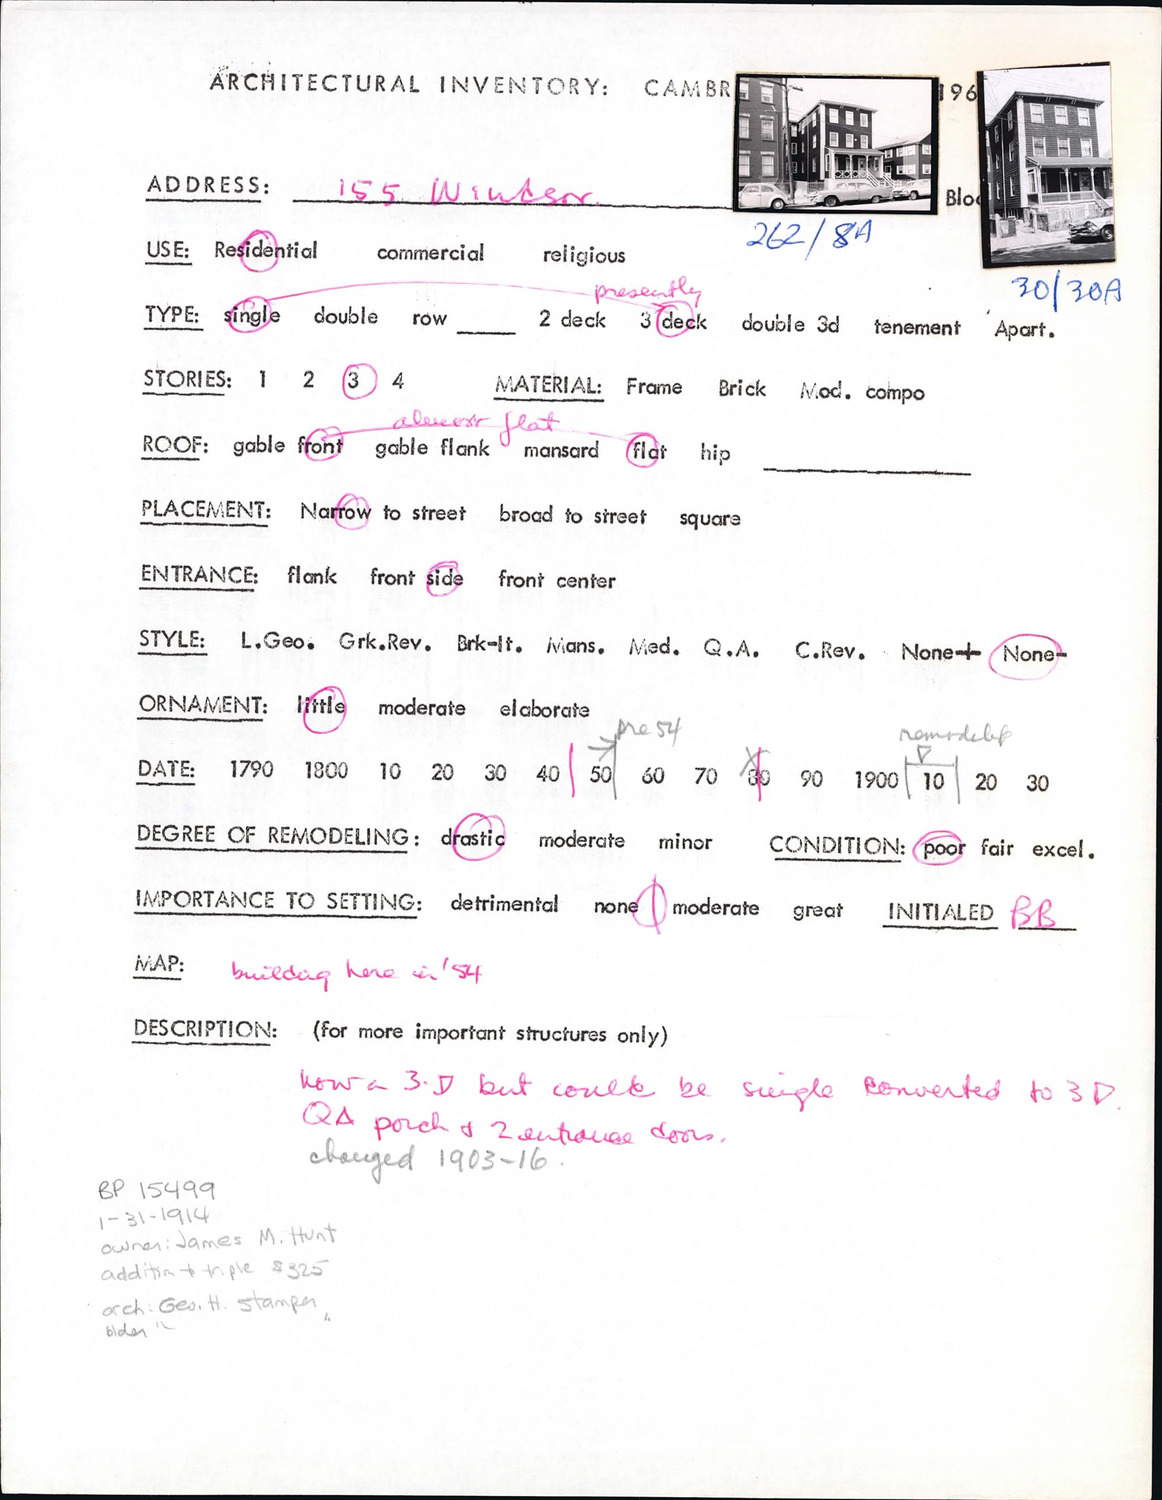 ARCHITECTURAL INVENTORY: CAMBR 196
ADDRESS: 155 Windsor Bloc
262/8A
30/30A
USE: Residential commercial religious
presently
TYPE: single double row ____ 2 deck 3 deck double 3d tenement Apart.
STORIES: 1 2 3 4 MATERIAL: Frame Brick Mod. compo
almost flat
ROOF: gable front gable flank mansard flat hip ____
PLACEMENT: Narrow to street broad to street square
ENTRANCE: flank front side front center
STYLE: L.Geo. Grk.Rev. Brk-It. Mans. Med. Q.A. C.Rev. None+ None-
ORNAMENT: little moderate elaborate
pre 54
DATE: 1790 1800 10 20 30 40 50 60 70 80 90 1900 10 20 30
DEGREE OF REMODELING: drastic moderate minor CONDITION: poor fair excel.
IMPORTANCE TO SETTING: detrimental none moderate great INITIALED BB
MAP: building here in '54
DESCRIPTION: (for more important structures only)
now a 3.D but could be single converted to 3 D.
QA porch & 2 entrance doors.
changed 1903-16.
BP 15499
1-31-1914
owner: James M. Hunt
addition triple $325
arch: Geo. H. Stamper
blder " "